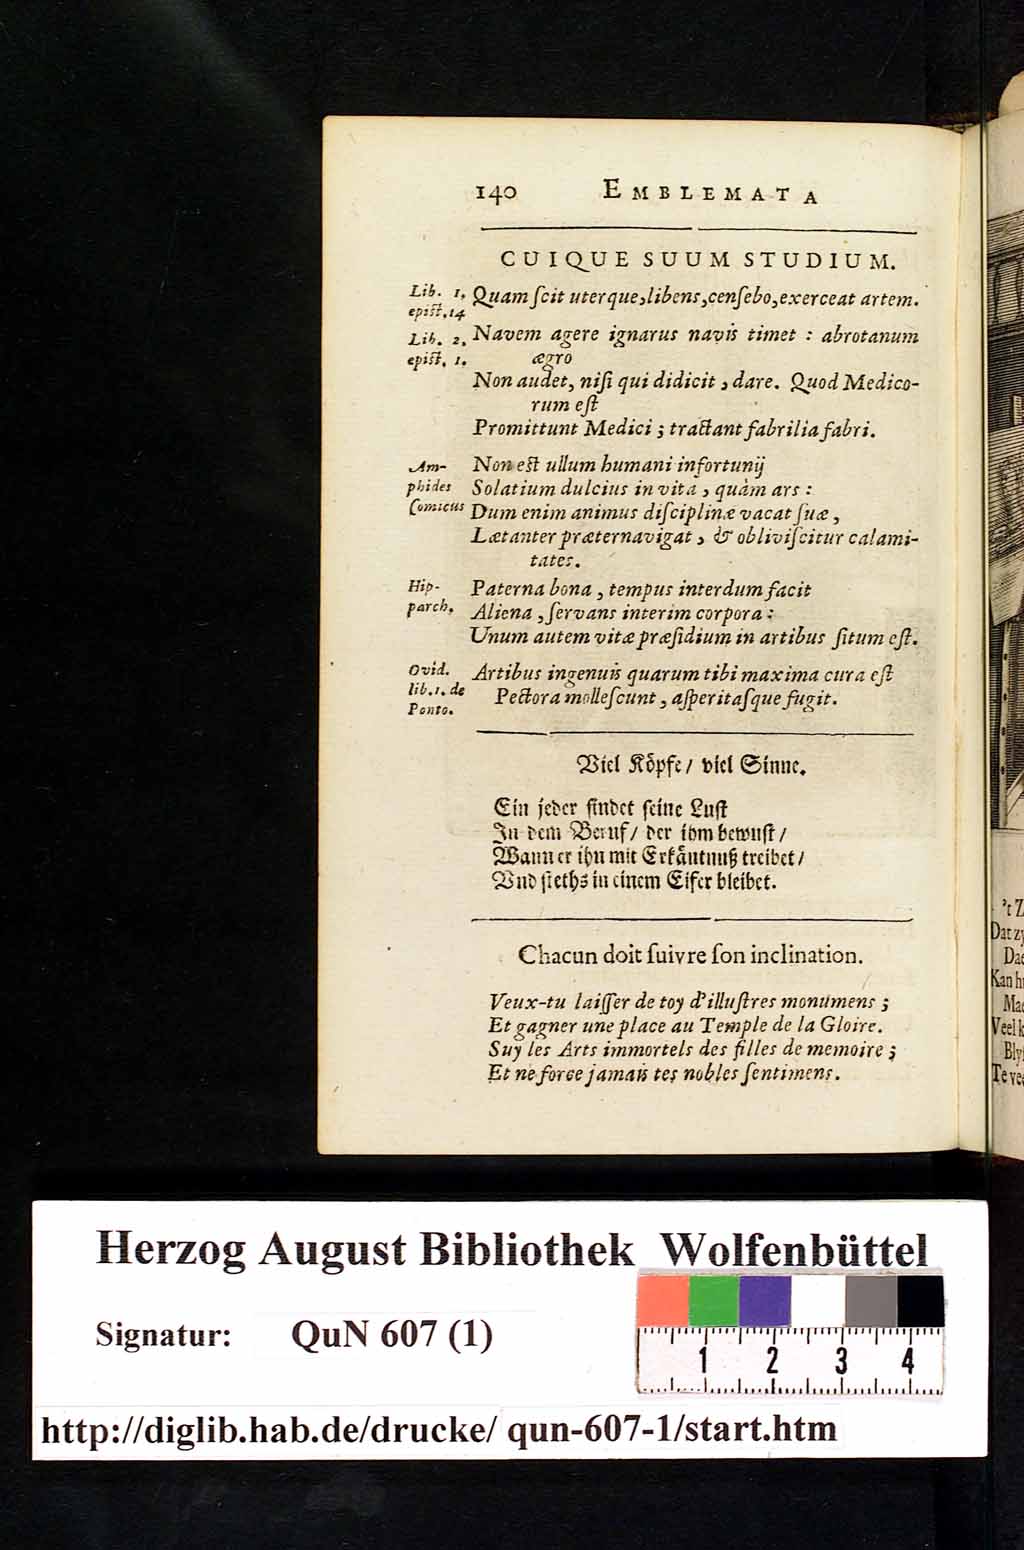 140 EMBLEMATA
CUIQUE SUUM STUDIUM.
Lib. 1. Quam ſcit uterque, libens, cenſebo, exerceat artem.
epiſt. 14
Lib. 2. Navem agere ignarus navis timet : abrotanum
epiſt. 1. ægro
Non audet, niſi qui didicit, dare. Quod Medico-
rum eſt
Promittunt Medici ; tractant fabrilia fabri.
Am- Non eſt ullum humani infortunij
phides Solatium dulcius in vita, quàm ars :
Comicus Dum enim animus diſciplinæ vacat ſuæ,
Lætanter præternavigat, & obliviſcitur calami-
tates.
Hip- Paterna bona, tempus interdum facit
parch. Aliena, ſervans interim corpora :
Unum autem vitæ præſidium in artibus ſitum eſt.
Ovid. Artibus ingenuis quarum tibi maxima cura eſt
lib. 1. de Pectora molleſcunt, aſperitaſque fugit.
Ponto.
Viel Köpfe/ viel Sinne.
Ein jeder findet ſeine Luſt
In dem Beruf/ der ihm bewuſt/
Wann er ihn mit Erkäntnuß treibet/
Vnd ſteths in einem Eifer bleibet.
Chacun doit ſuivre ſon inclination.
Veux-tu laiſſer de toy d'illuſtres monumens ;
Et gagner une place au Temple de la Gloire.
Suy les Arts immortels des filles de memoire ;
Et ne force jamais tes nobles ſentimens.
't Z
Dat zy
Dae
Kan h
Ma
Veel k
Bly
Te vee
Herzog August Bibliothek Wolfenbüttel
Signatur: QuN 607 (1)
1 2 3 4
http://diglib.hab.de/drucke/ qun-607-1/start.htm